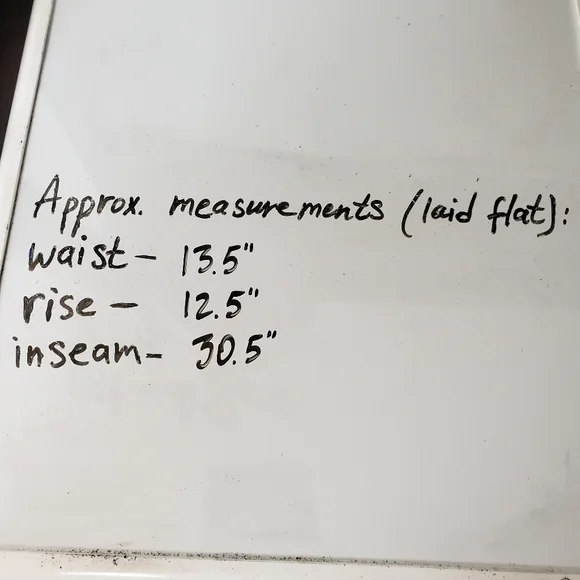 Approx. measurements (laid flat):
waist - 13.5"
rise - 12.5"
inseam - 30.5"